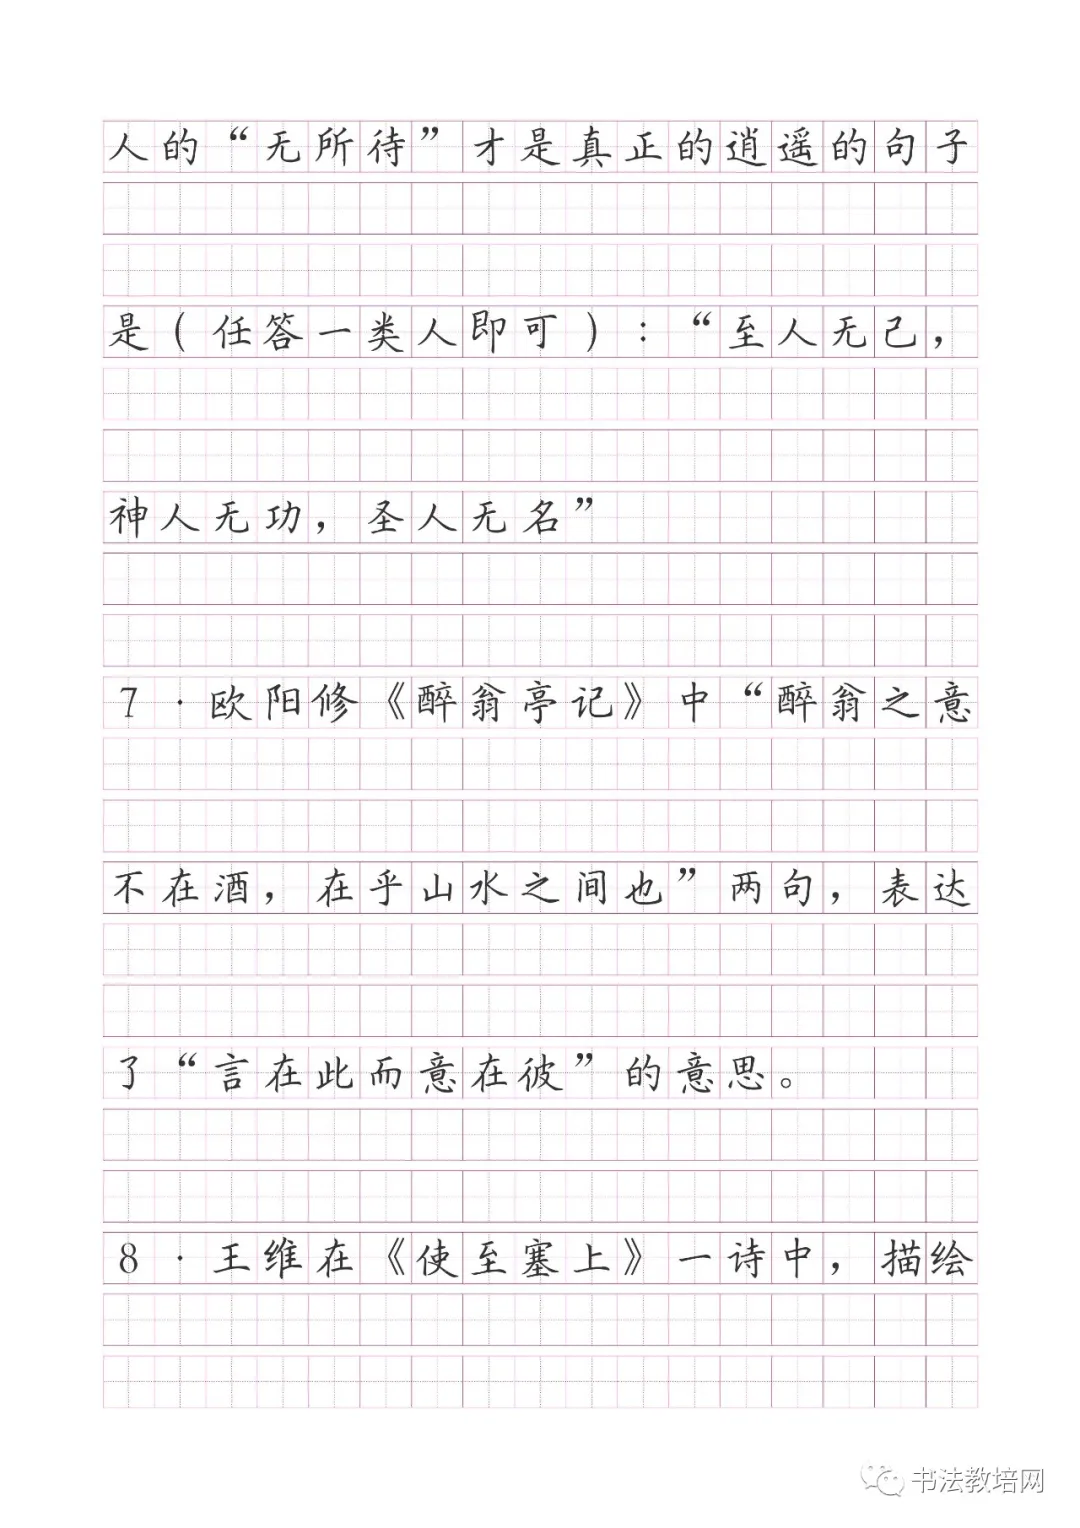 人的“无所待”才是真正的逍遥的句子
是(任答一类人即可):“至人无己,
神人无功,圣人无名”
7·欧阳修《醉翁亭记》中“醉翁之意
不在酒,在乎山水之间也”两句,表达
了“言在此而意在彼”的意思。
8·王维在《使至塞上》一诗中,描绘
书法教培网